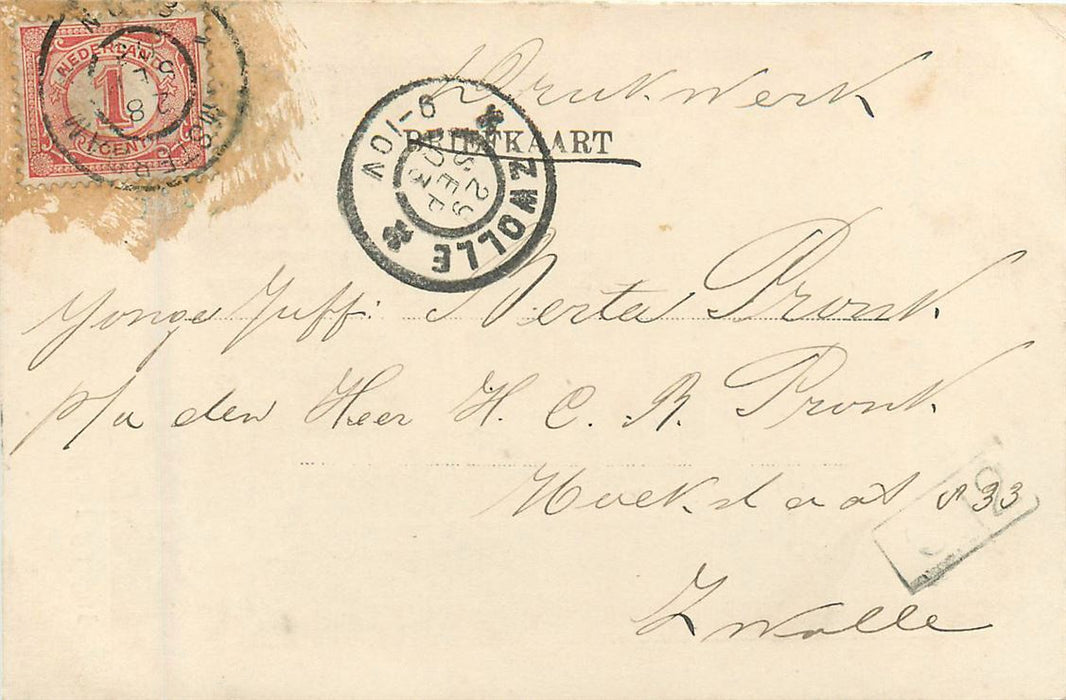 NEDERLAND
1
CENT
Drukwerk
BRIEFKAART
ZWOLLE
29 SEP 03
9-10V
Jonge Juff: Berta Pronk
p/a den Heer H. C. R. Pronk
Hoekstraat 33
Zwolle